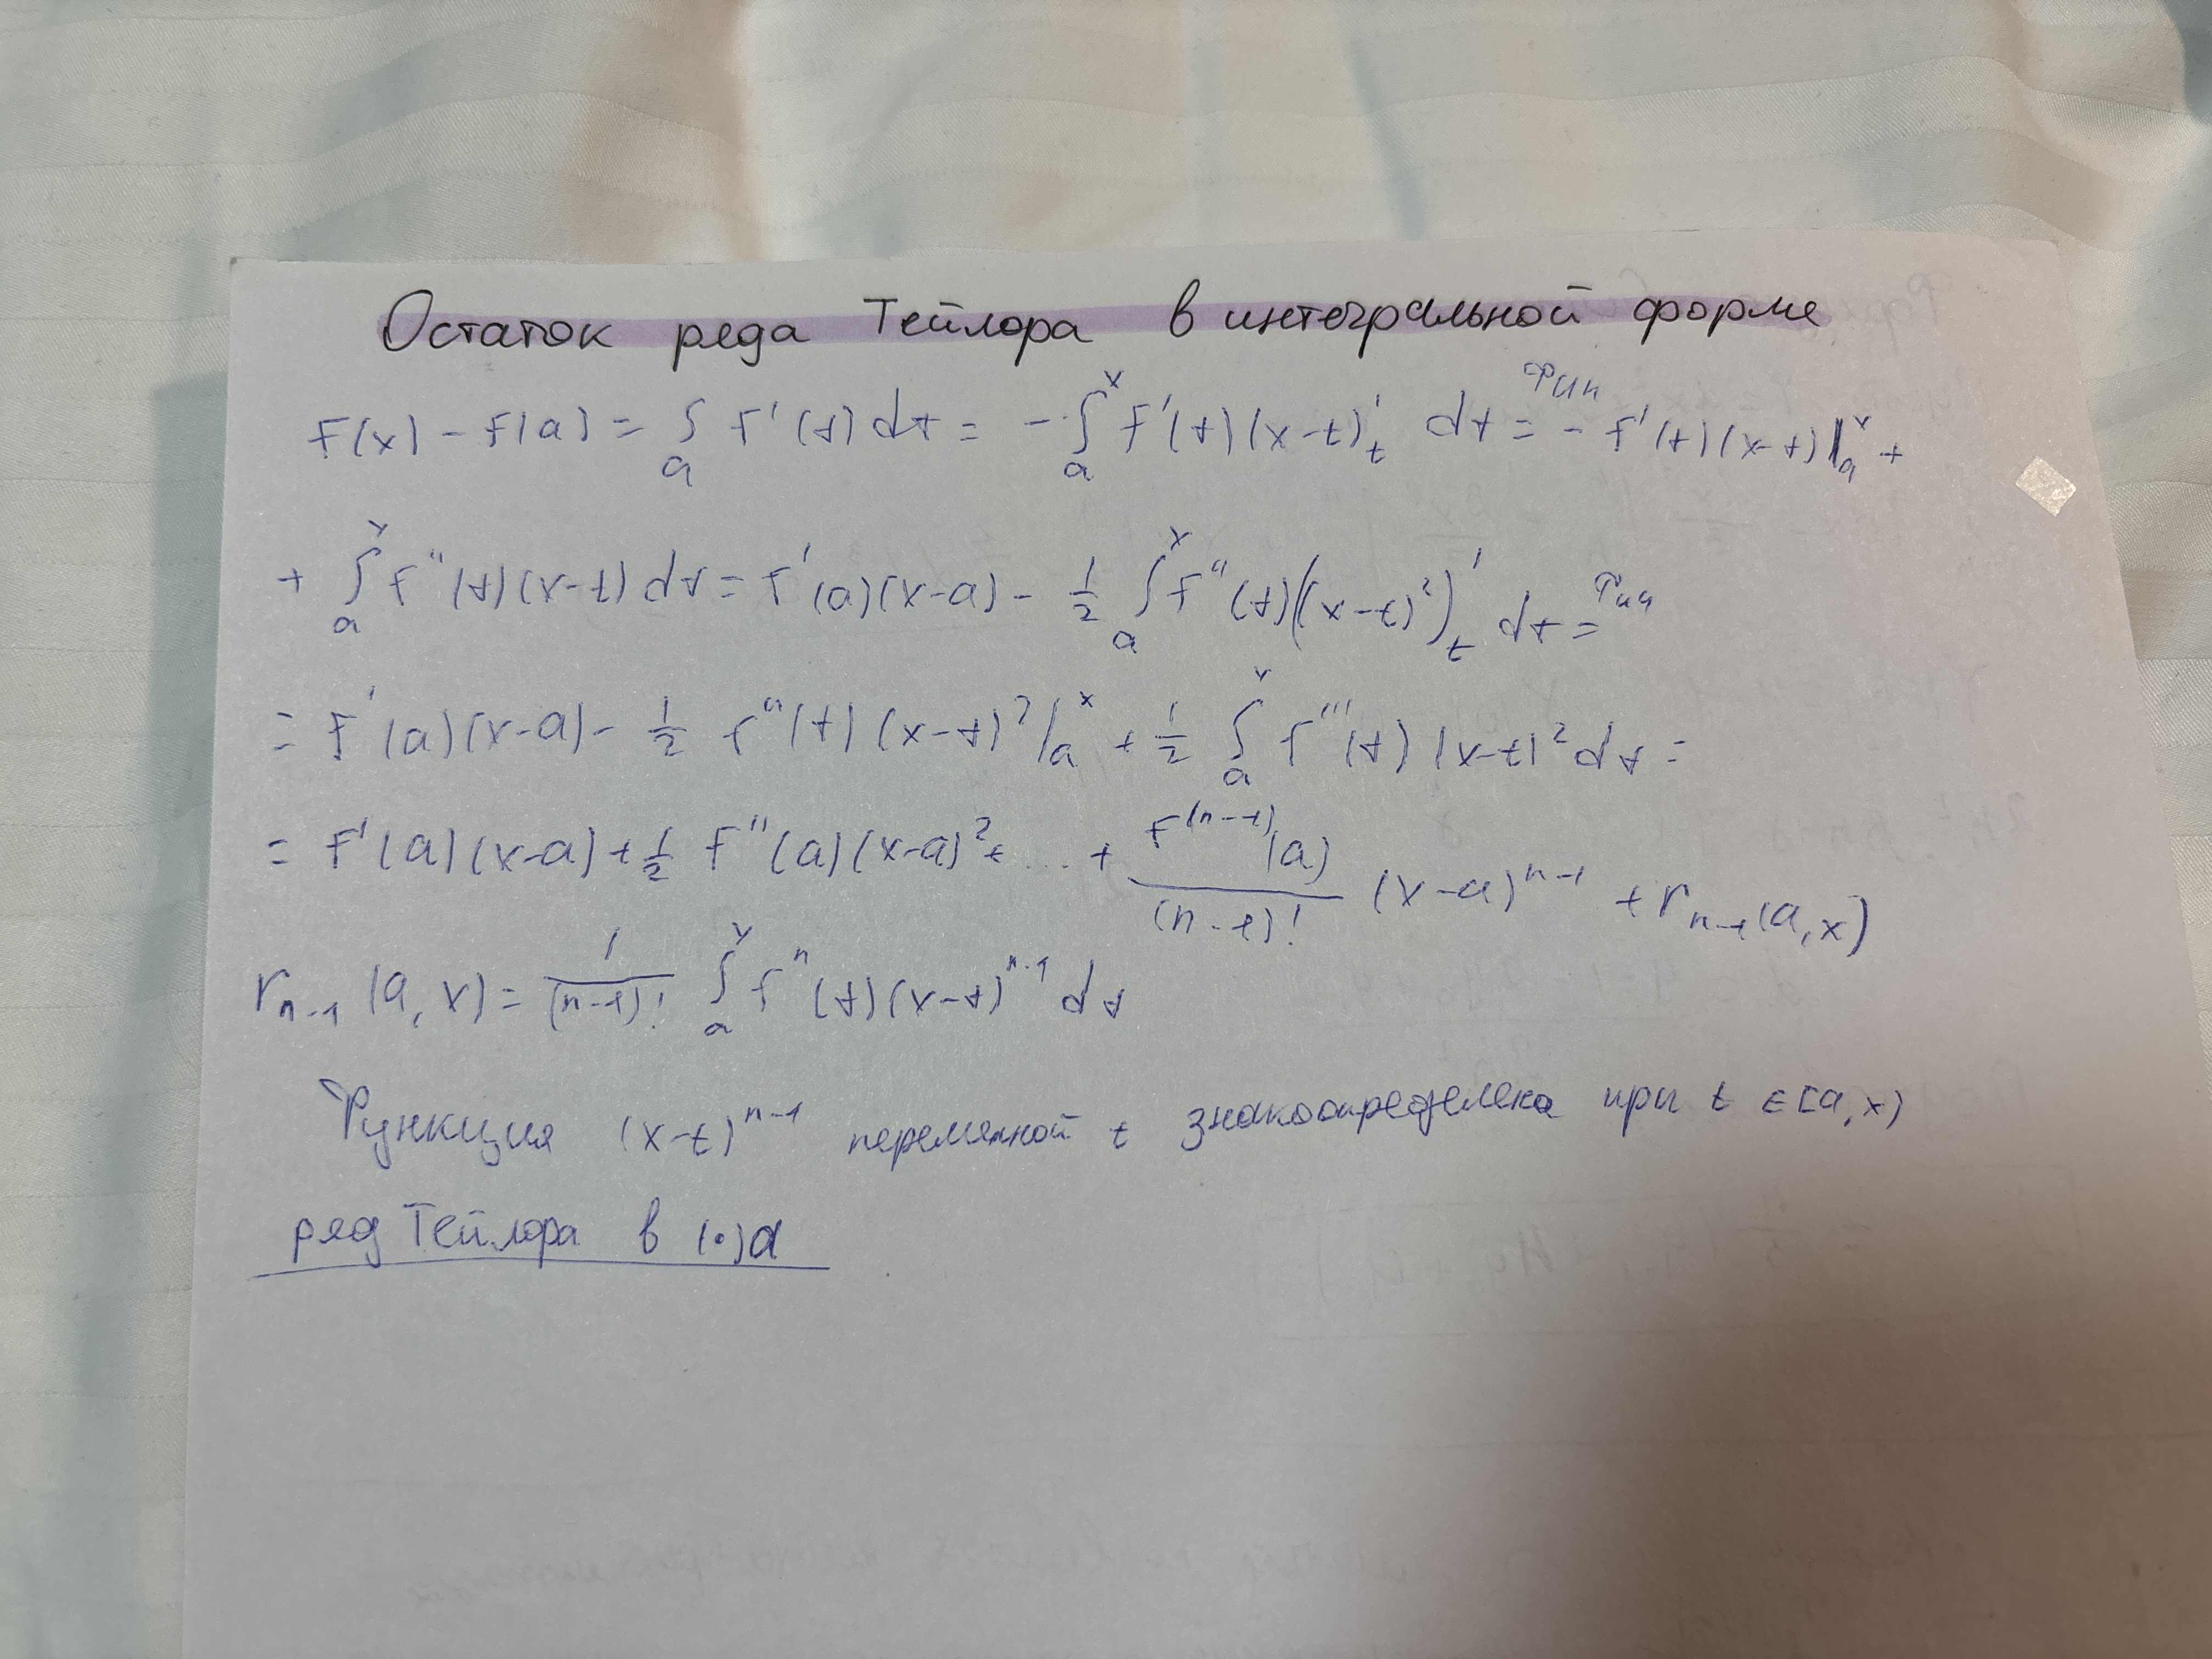 Остаток ряда Тейлора в интегральной форме
f(x) - f(a) = ∫ₐ f'(t) dt = - ∫ₐˣ f'(t)(x-t)'ₜ dt =ᶠᴵᴾ - f'(t)(x-t)|ₐˣ +
+ ∫ₐˣ f''(t)(x-t) dt = f'(a)(x-a) - 1/2 ∫ₐˣ f''(t)((x-t)²)'ₜ dt =
= f'(a)(x-a) - 1/2 f''(t)(x-t)²|ₐˣ + 1/2 ∫ₐˣ f'''(t)(x-t)² dt =
= f'(a)(x-a) + 1/2 f''(a)(x-a)² + ... + f⁽ⁿ⁻¹⁾(a)/(n-1)! (x-a)ⁿ⁻¹ + rₙ₋₁(a,x)
rₙ₋₁(a,x) = 1/(n-1)! ∫ₐˣ fⁿ(t)(x-t)ⁿ⁻¹ dt
Функция (x-t)ⁿ⁻¹ переменной t знакоопределена при t ∈ [a,x)
ряд Тейлора в (•)a